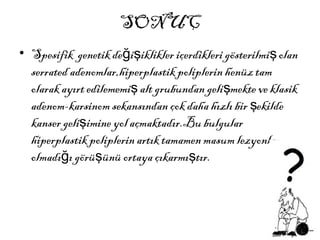 SONUÇ
• Spesifik genetik değişiklikler içerdikleri gösterilmiş olan
serrated adenomlar,hiperplastik poliplerin henüz tam
olarak ayırt edilememiş alt grubundan gelişmekte ve klasik
adenom-karsinom sekansından çok daha hızlı bir şekilde
kanser gelişimine yol açmaktadır.Bu bulgular
hiperplastik poliplerin artık tamamen masum lezyonlar
olmadığı görüşünü ortaya çıkarmıştır.
?